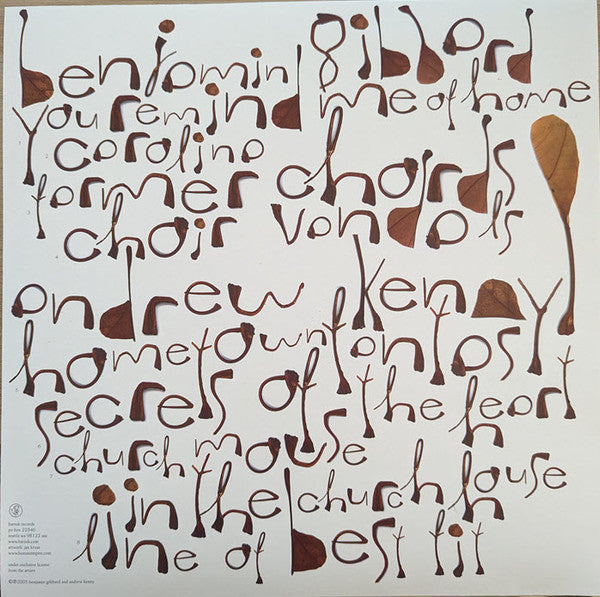 benjamin gibbard
1 you remind me of home
2 carolina
3 farmer chords
4 choir vandals
andrew kenny
5 hometown fantasy
6 secrets of the heart
7 church mouse
in the church house
8 line of best fit
barsuk records
po box 22546
seattle wa 98122 usa
www.barsuk.com
artwork: jan kruse
www.humanempire.com
under exclusive license
from the artists
©℗2003 benjamin gibbard and andrew kenny